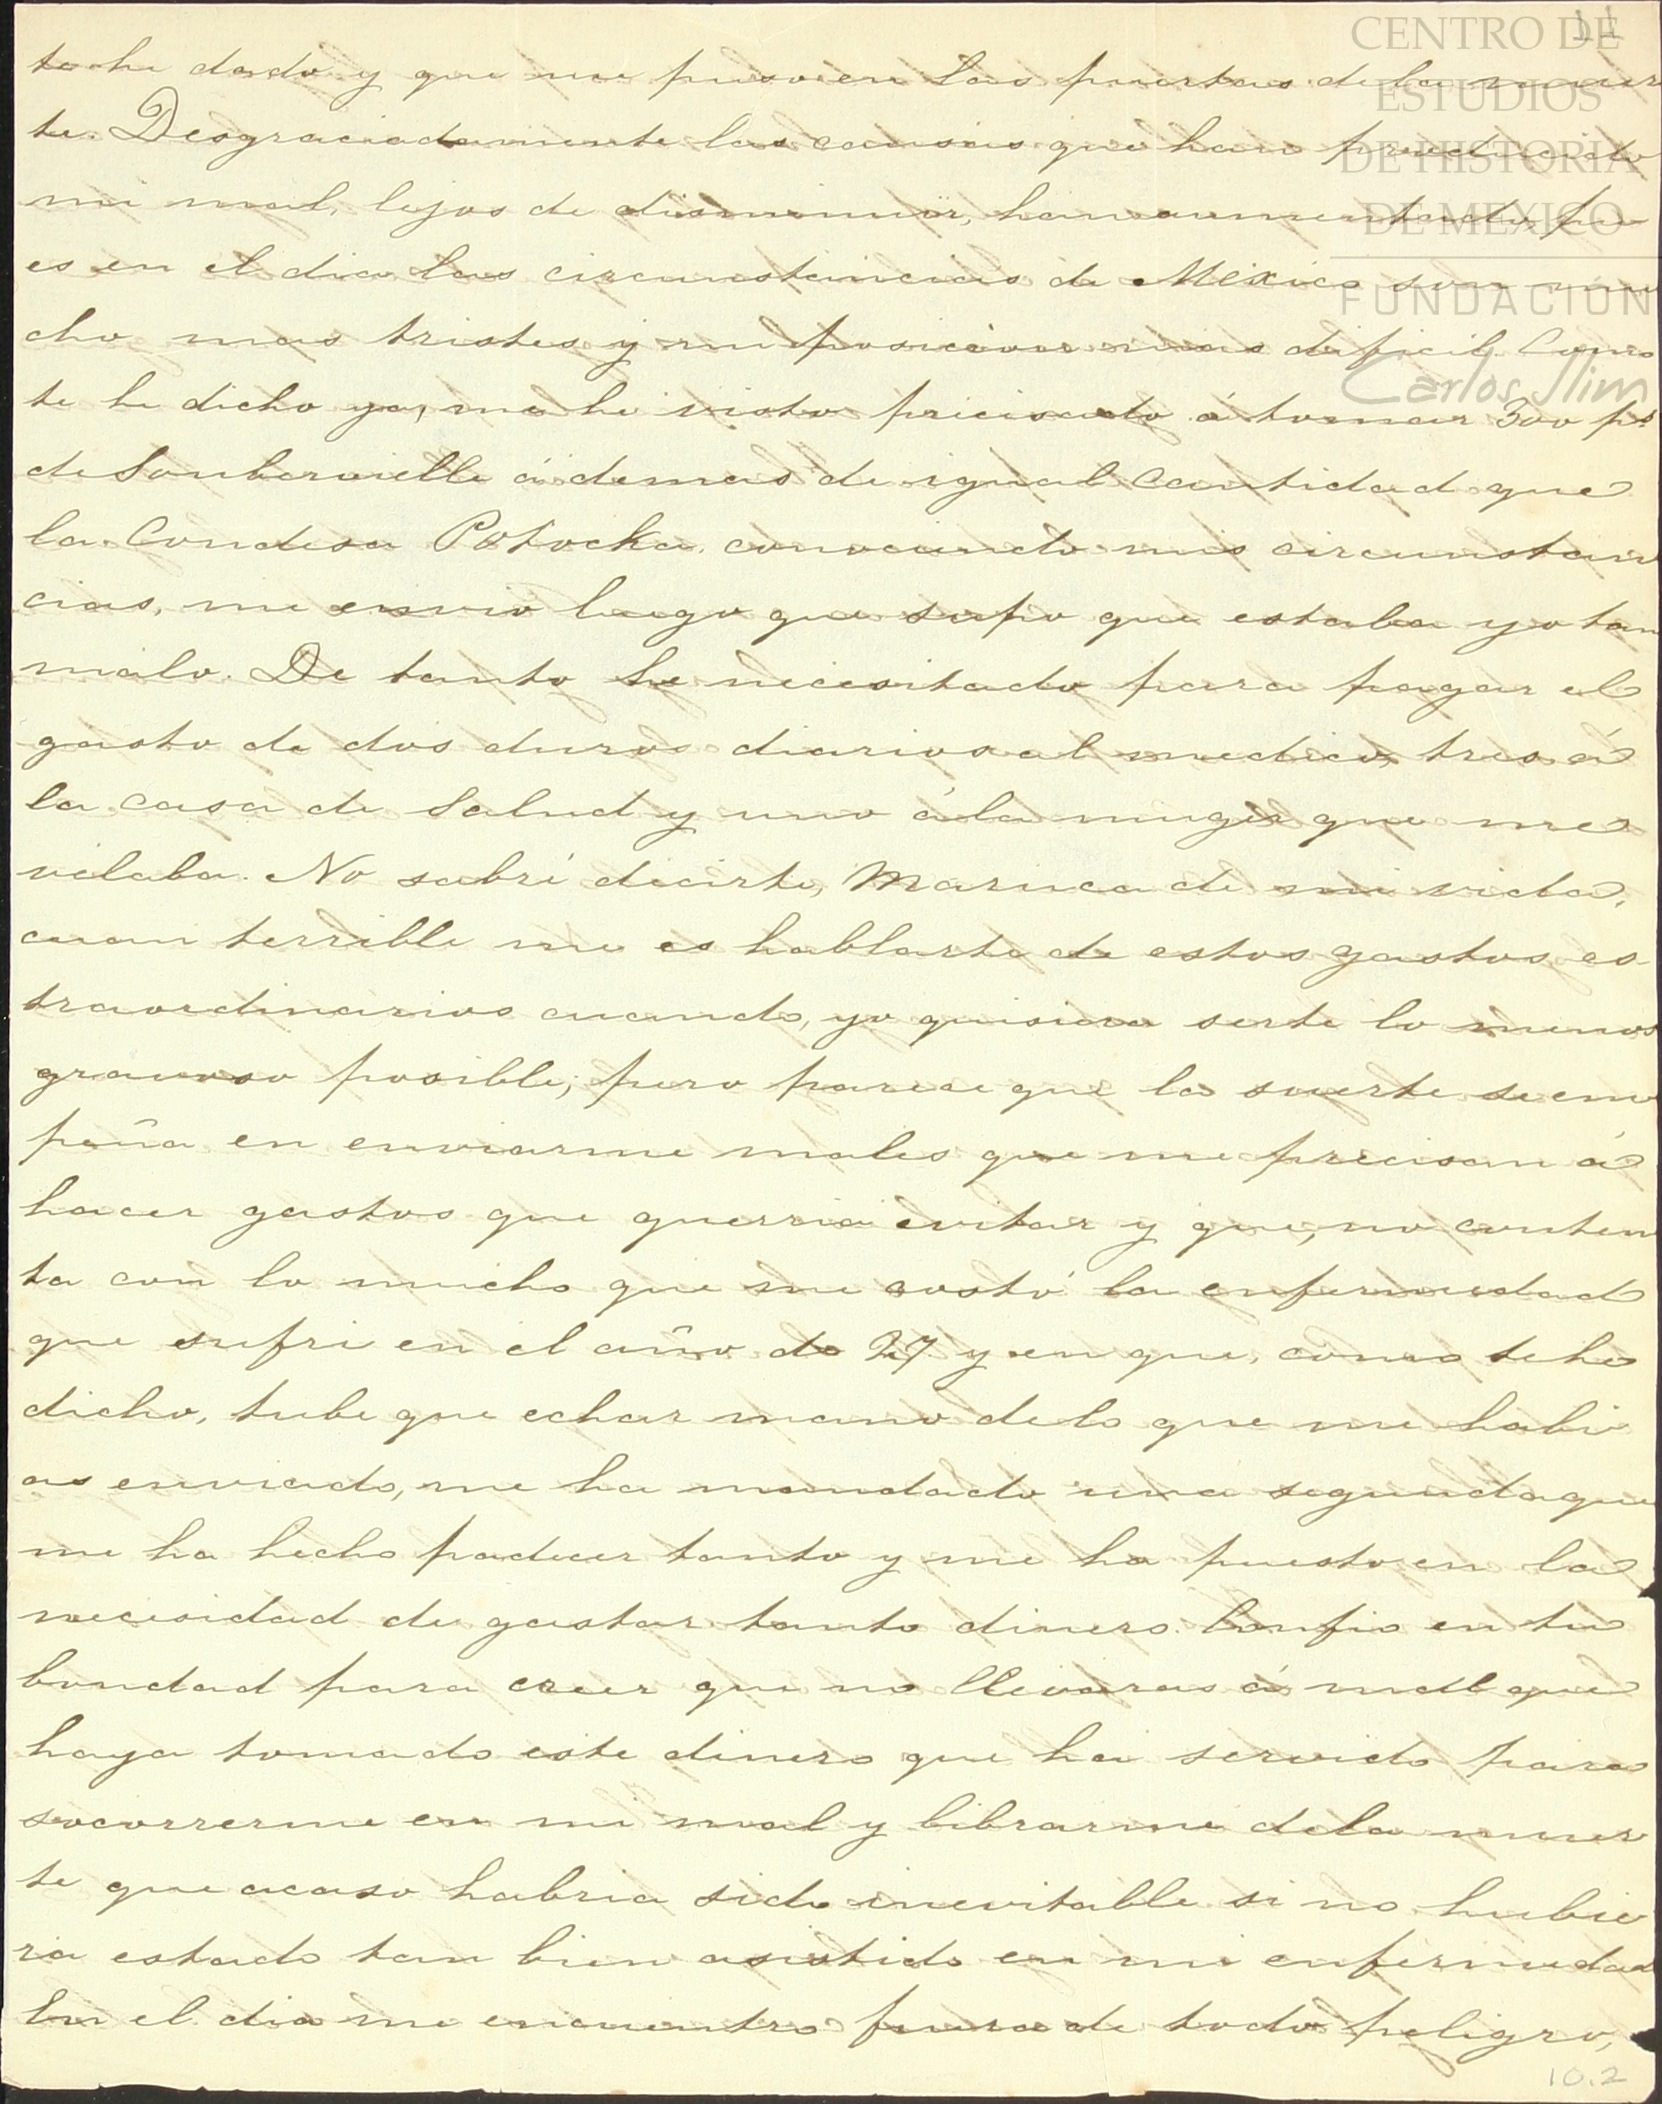 11
CENTRO DE
ESTUDIOS
DE HISTORIA
DE MEXICO
FUNDACIÓN
Carlos Slim
te he dado y que me puso en las puertas de la muer
te. Desgraciadamente las causas que han producido
mi mal, lejos de disminuir, han aumentado pu-
es en el dia las circunstancias de Mexico son mu
cho mas tristes y mi posicion mas dificil. Como
te he dicho ya, me he visto precisado á tomar 300 ps
de Soubervielle ádemas de igual cantidad que
la Condesa Potocka, conociendo mis circunstan
cias, me envio luego que supo que estaba yo tan
malo. De tanto he necesitado para pagar el
gasto de dos duros diarios al medico, tres á
la casa de Salud y uno á la muger que me
velaba. No sabré decirte, Maruca de mi vida,
cuan terrible me es hablarte de estos gastos es
traordinarios cuando, yo quisiera serte lo menos
gravoso posible; pero parece que la suerte se em
peña en enviarme males que me precisan á
hacer gastos que querria evitar y que, no conten
ta con lo mucho que me costó la enfermedad
que sufri en el año de 27 y en que, como te he
dicho, tube que echar mano de lo que me habi
as enviado, me ha mandado una segunda que
me ha hecho padecer tanto y me ha puesto en la
necesidad de gastar tanto dinero. Confio en tu
bondad para creer que no llevaras á mal que
haya tomado este dinero que ha servido para
socorrerme en mi mal y librarme de la muer
te que acaso habria sido inevitable si no hubie
ra estado tan bien asistido en mi enfermedad
En el dia me encuentro fuera de todo peligro,
10.2